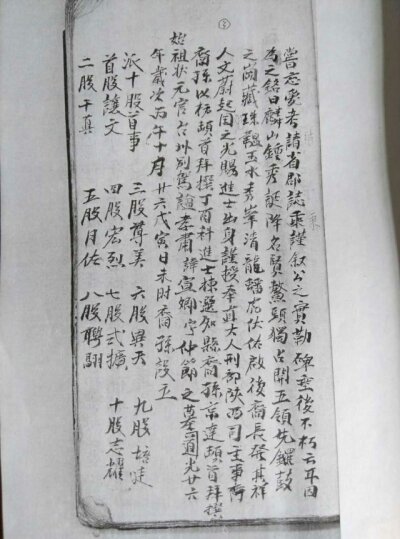 ③
嘗志爰考諸省郡誌乘謹叙公之實勒碑垂後不朽云耳因
為之銘曰麟山鍾秀誕降名賢鰲頭獨占開五領先鑼鼓
之崗藏珠韞玉水秀峯清龍蟠虎伏佑啟後裔長發其祥
人文蔚起因之光賜進士出身誥授奉直大人刑部陝西司主事
裔孫以頓首拜撰丁酉科進士揀選知縣裔孫京達頓首拜撰
始祖狀元官台州別駕諡孝肅諱寅卿字仲節之墓道光廿六
年歲次丙午十月廿六戊寅日未時裔孫設立
派十股首事 三股尊美 六股異天 九股培廷
首股謨文 四股宏烈 七股式擴 十股志耀
二股于真 五股月佑 八股聘翮